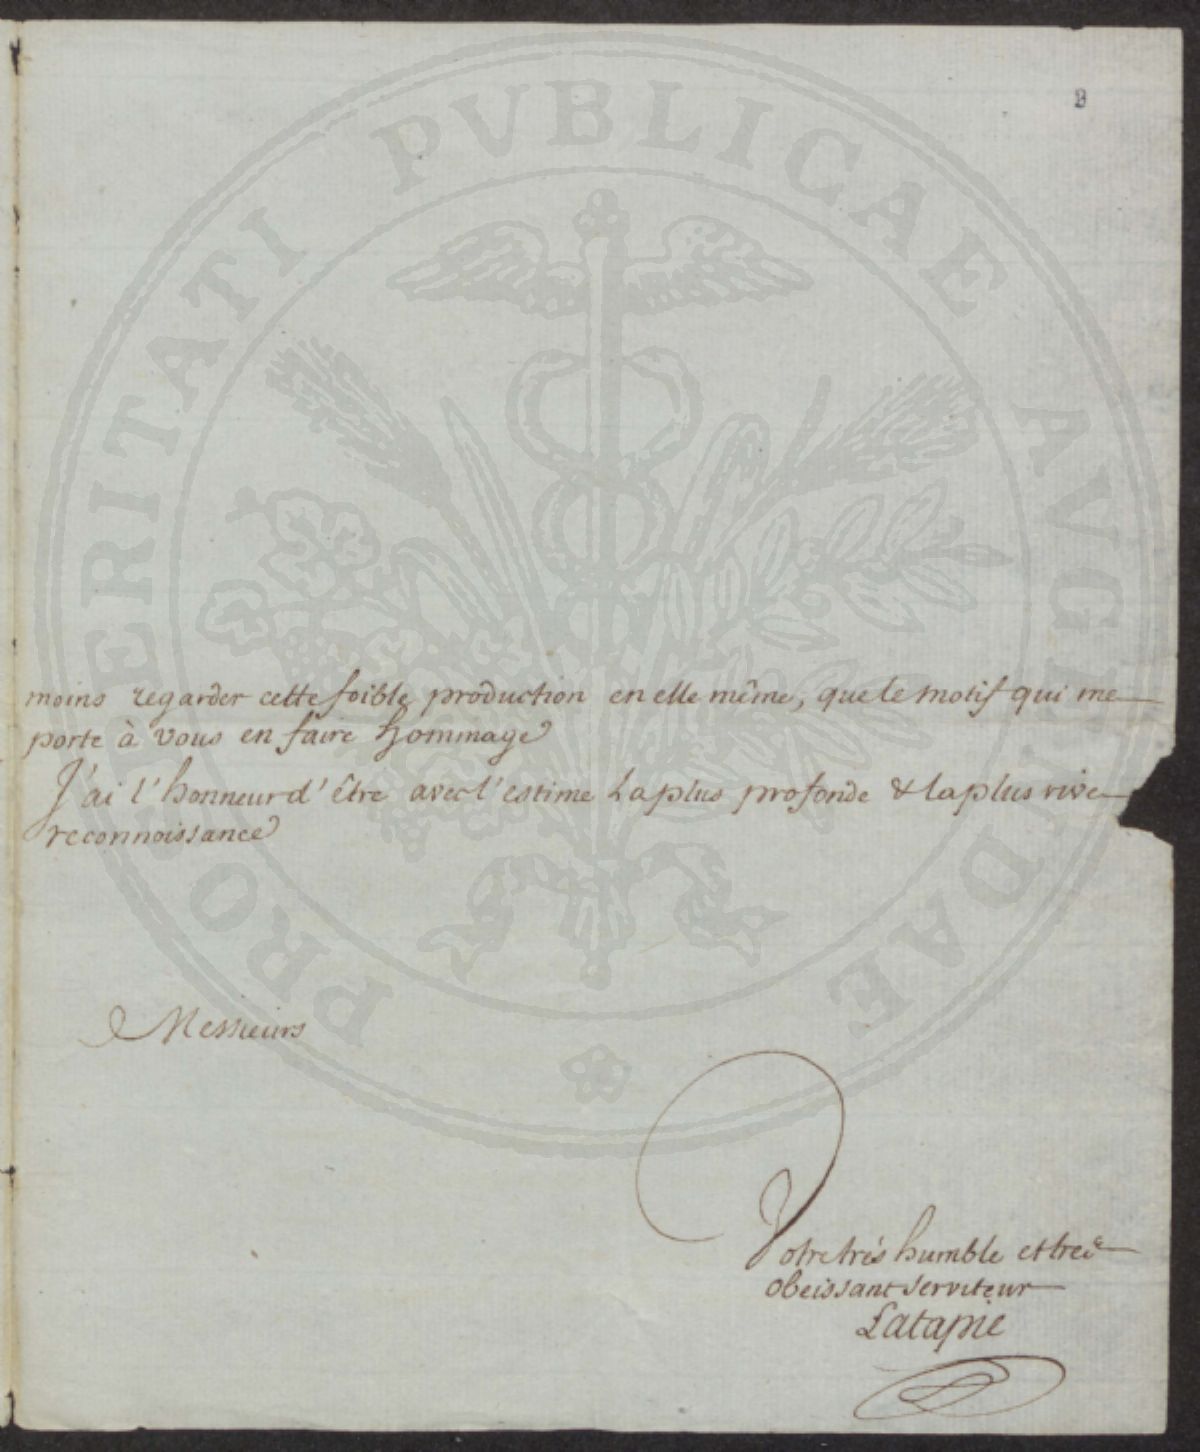 PROSPERITATI PVBLICAE AVGENDAE
moins regarder cette foible production en elle même, que le motif qui me
porte à vous en faire hommage
J'ai l'honneur d'être avec l'estime la plus profonde & la plus vive
reconnoissance
Messieurs
Votre trés humble et tres
obeissant serviteur
Latapie